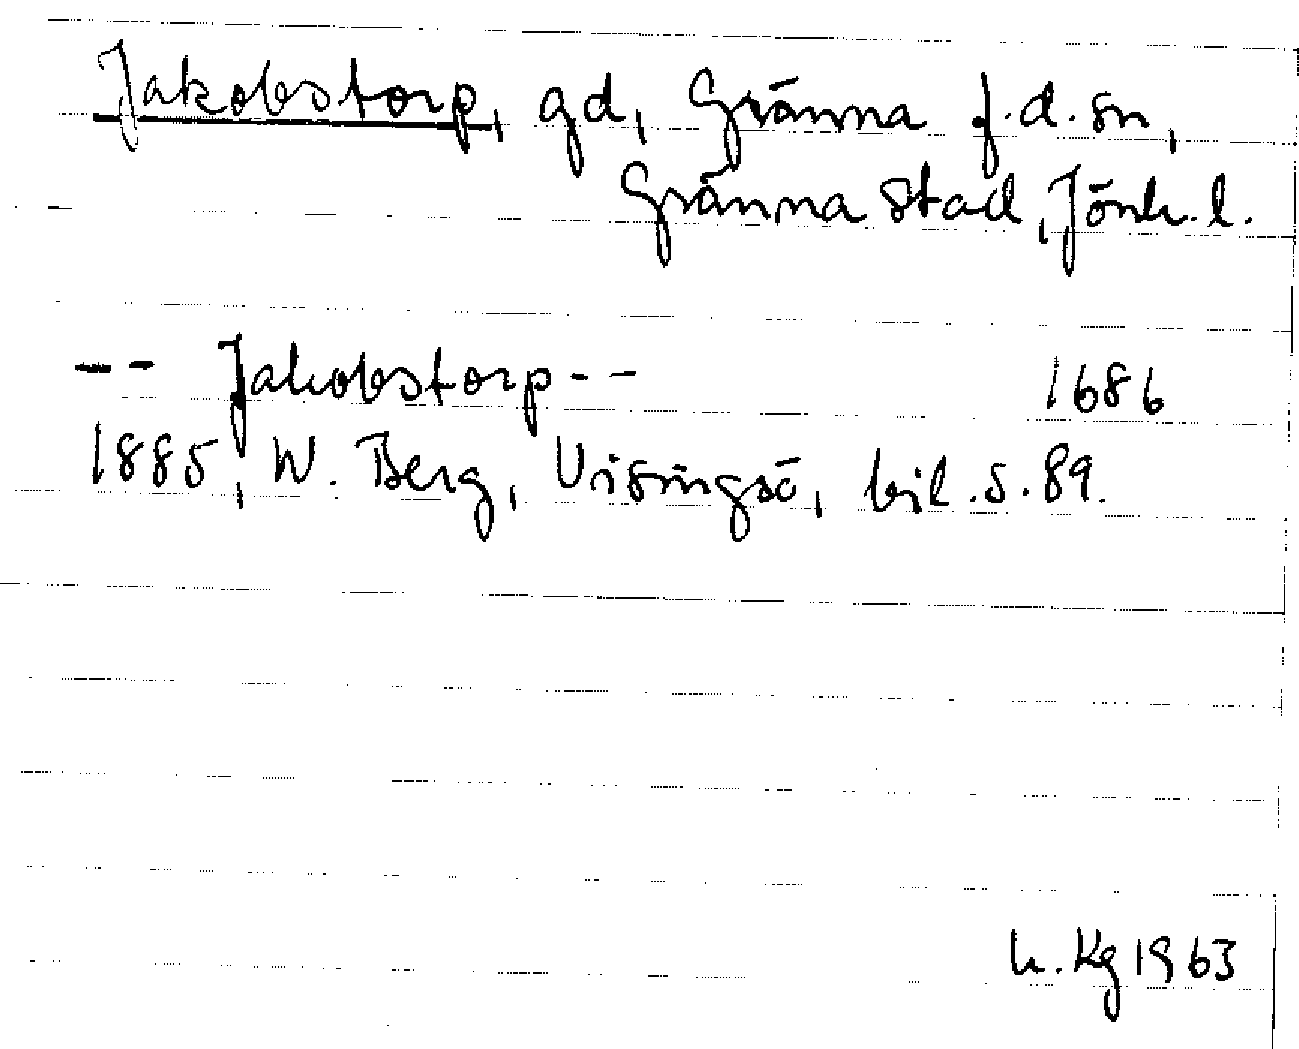 Jakobstorp, gd, Gränna f.d. sn,
Gränna stad, Jönk. l.
-- Jakobstorp -- 1686
1885, W. Berg, Visingsö, bil. s. 89.
h. Kg 1963